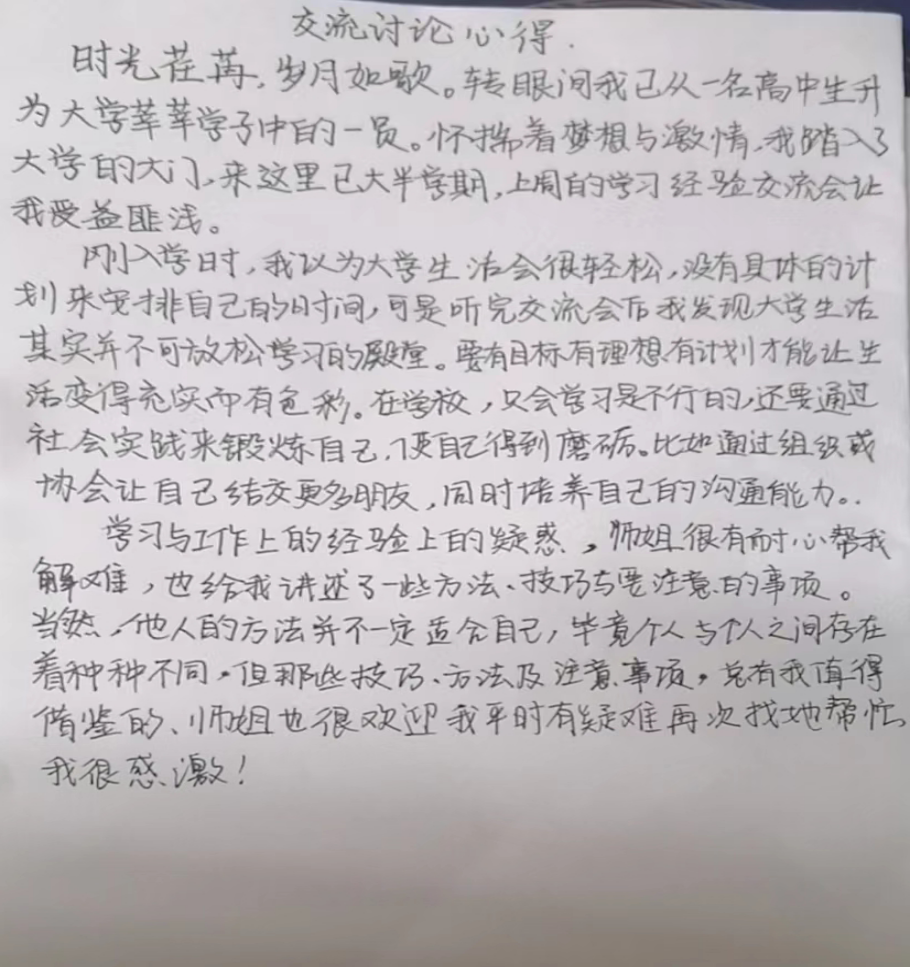 交流讨论心得.
时光荏苒,岁月如歌。转眼间我已从一名高中生升
为大学莘莘学子中的一员。怀揣着梦想与激情,我踏入了
大学的大门,来这里已大半学期,上周的学习经验交流会让
我受益匪浅。
刚入学时,我以为大学生活会很轻松,没有具体的计
划来安排自己的时间,可是听完交流会后我发现大学生活
其实并不可放松学习的殿堂。要有目标有理想有计划才能让生
活变得充实而有色彩。在学校,只会学习是不行的,还要通过
社会实践来锻炼自己,使自己得到磨砺。比如通过组织或
协会让自己结交更多朋友,同时培养自己的沟通能力。
学习与工作上的经验上的疑惑,师姐很有耐心帮我
解难,也给我讲述了一些方法、技巧与要注意的事项。
当然,他人的方法并不一定适合自己,毕竟个人与个人之间存在
着种种不同,但那些技巧、方法及注意事项,总有我值得
借鉴的、师姐也很欢迎我平时有疑难再次找她帮忙
我很感激!